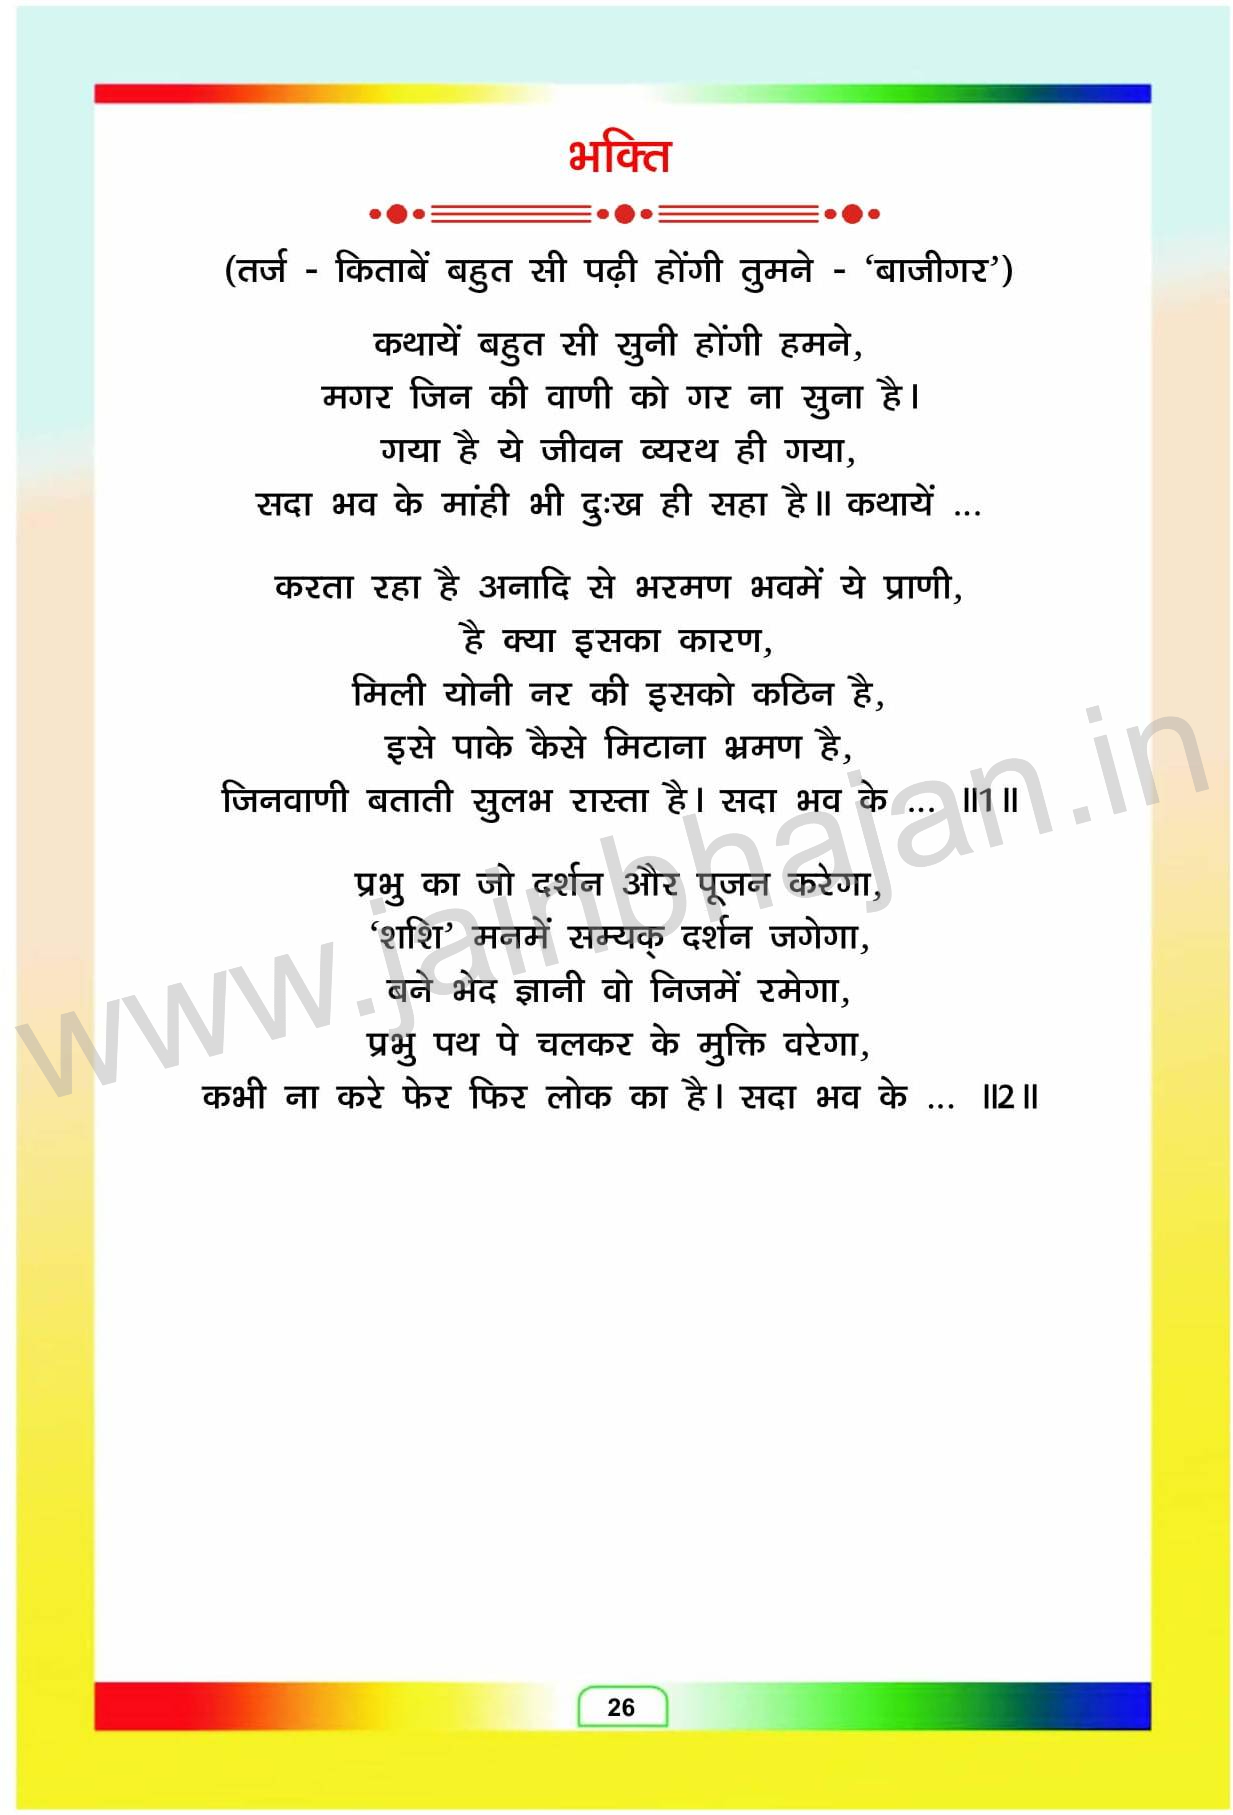 भक्ति
(तर्ज - किताबें बहुत सी पढ़ी होंगी तुमने - ‘बाजीगर’)
कथायें बहुत सी सुनी होंगी हमने,
मगर जिन की वाणी को गर ना सुना है।
गया है ये जीवन व्यरथ ही गया,
सदा भव के मांही भी दुःख ही सहा है॥ कथायें ...
करता रहा है अनादि से भरमण भवमें ये प्राणी,
है क्या इसका कारण,
मिली योनी नर की इसको कठिन है,
इसे पाके कैसे मिटाना भ्रमण है,
जिनवाणी बताती सुलभ रास्ता है। सदा भव के ... ॥1॥
प्रभु का जो दर्शन और पूजन करेगा,
‘शशि’ मनमें सम्यक् दर्शन जगेगा,
बने भेद ज्ञानी वो निजमें रमेगा,
प्रभु पथ पे चलकर के मुक्ति वरेगा,
कभी ना करे फेर फिर लोक का है। सदा भव के ... ॥2॥
www.jainbhajan.in
26